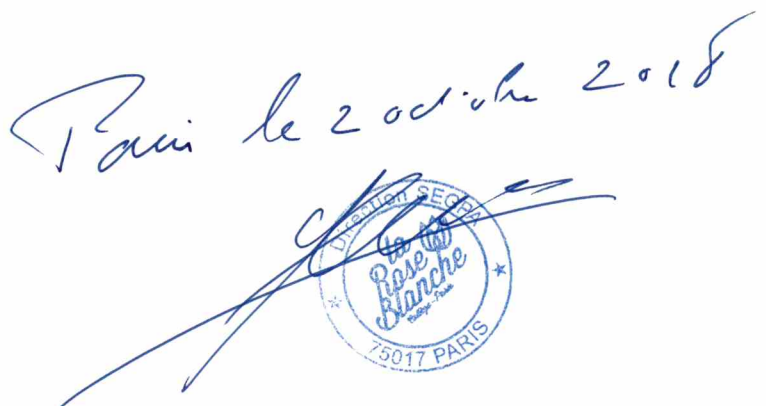 Paris le 2 octobre 2018
Direction SEGPA
la
Rose
Blanche
Collège - Paris
75017 PARIS